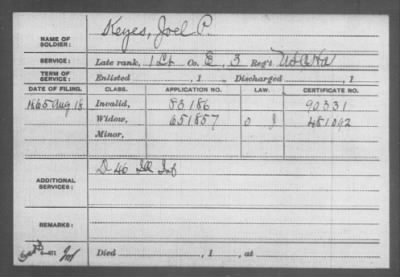 NAME OF SOLDIER: Keyes, Joel P.
SERVICE: Late rank, 1 Lt Co. E, 3 Reg't
TERM OF SERVICE: Enlisted , 1 Discharged , 1
DATE OF FILING. CLASS. APPLICATION NO. LAW. CERTIFICATE NO.
1865 Aug 18 Invalid, 83186 90331
Widow, 651857 481092
Minor,
ADDITIONAL SERVICES: D 46 Ill Inf
REMARKS:
Died , 1 , at